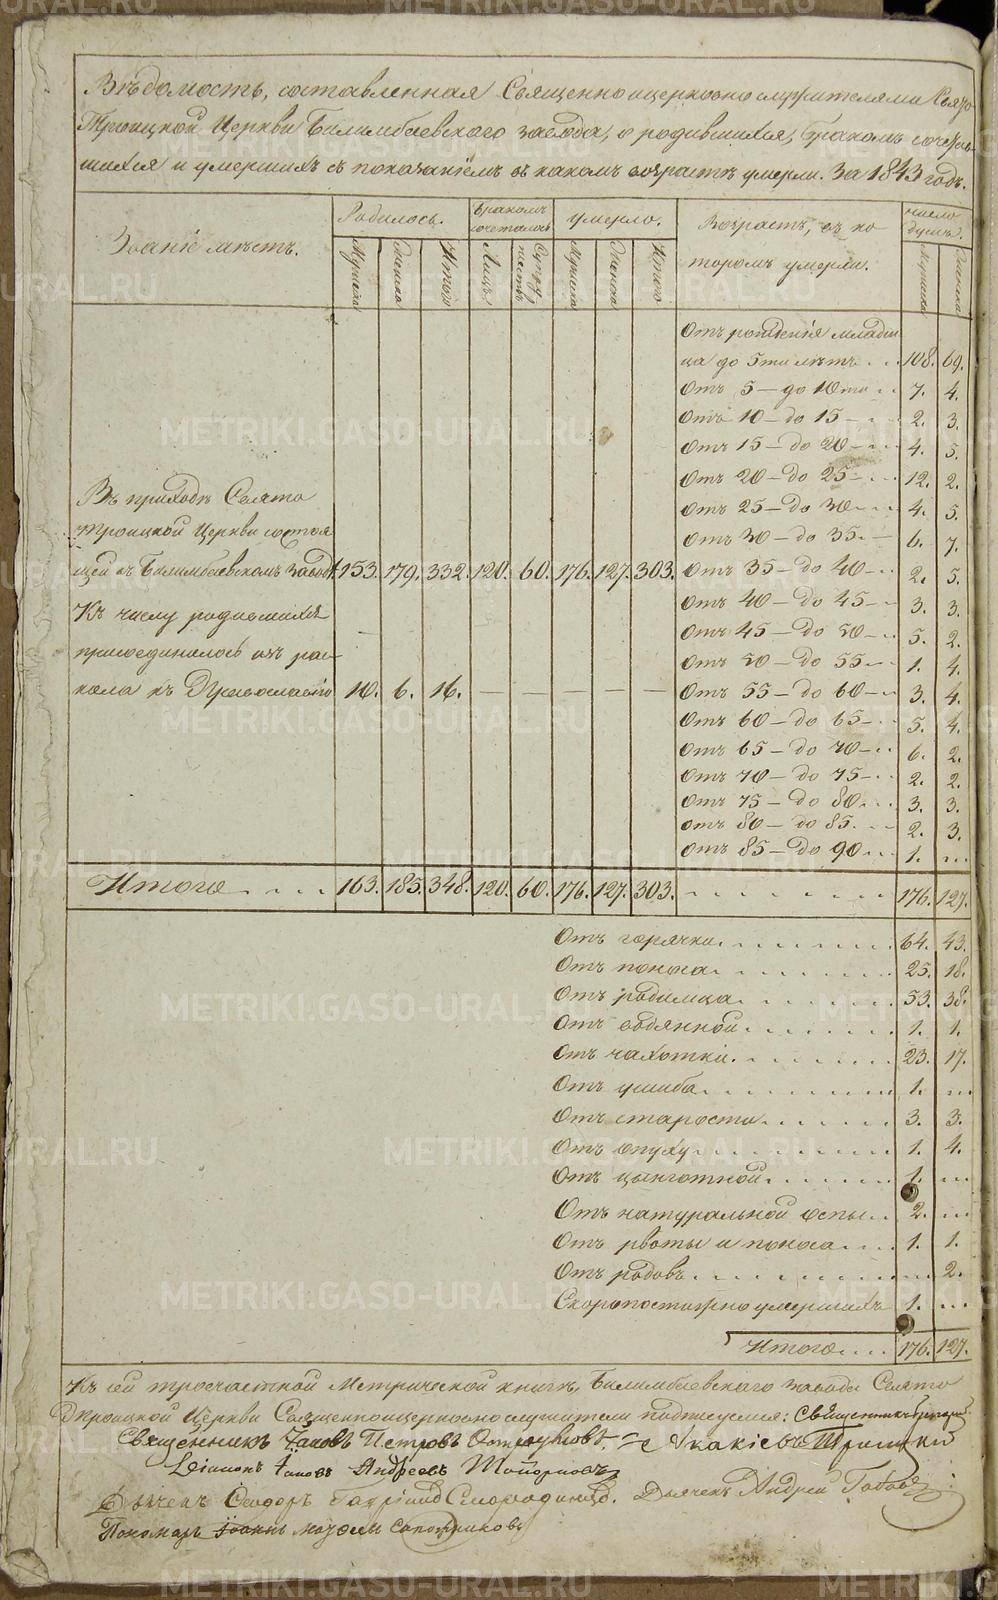 Вѣдомость, составленная Священно и церковно служителями Свято
Троицкой Церкви Билимбаевскаго завода, о родившихся, бракомъ сочетав-
шихся и умершихъ съ показаніемъ въ какомъ возрастѣ умерли. За 1843 годъ.
Званіе мѣстъ.
Родилось.
Бракомъ сочеталось
умерло.
Возрастъ, въ ко
торомъ умерли.
число душъ.
Мужеска
Женска
Итого
Лицъ
Супружествъ
Мужеска
Женска
Итого
Мужеска
Женска
Отъ рожденія младен
ца до 5ти лѣтъ . . . 108. 69.
Отъ 5 – до 10ти . . 7. 4.
Отъ 10 – до 15 – . . 2. 3.
Отъ 15 – до 20 – . . 4. 5.
Отъ 20 – до 25 – . . 12. 2.
Отъ 25 – до 30 . . . 4. 5.
Отъ 30 – до 35. – 6. 7.
Въ приходѣ Свято
Троицкой Церкви состоя
щей въ Билимбаевскомъ заводѣ. 153. 179. 332. 120. 60. 176. 127. 303. Отъ 35 – до 40 – . . 2. 5.
Отъ 40 – до 45 – . . 3. 3.
Къ числу родившихся
Отъ 45 – до 50 – . . 5. 2.
присоединилось изъ рас-
Отъ 50 – до 55 – . . 1. 4.
кола къ Православію 10. 6. 16. — — — — — Отъ 55 – до 60 – . . 3. 4.
Отъ 60 – до 65 – . . 5. 4.
Отъ 65 – до 70 – . . 6. 2.
Отъ 70 – до 75 – . . 2. 2.
Отъ 75 – до 80 . . . 3. 3.
отъ 80 – до 85. . . 2. 3.
отъ 85 – до 90 . . . 1. ...
Итого . . . . 163. 185. 348. 120. 60. 176. 127. 303. . . . . . . 176. 127.
Отъ горячки. . . . . . . 64. 43.
Отъ поноса. . . . . . . 25. 18.
Отъ родимца. . . . . . . 53. 38.
Отъ водянной. . . . . . . 1. 1.
Отъ чахотки. . . . . . . 23. 17.
Отъ ушиба. . . . . . . 1. ...
Отъ старости. . . . . . . 3. 3.
Отъ опуху. . . . . . . 1. 4.
Отъ цынготной. . . . . . . 1. ...
Отъ натуральной оспы. . . 2. ...
Отъ рвоты и поноса. . . . 1. 1.
Отъ родовъ. . . . . . . ... 2.
Скоропостижно умершихъ 1. ...
Итого. . . . 176. 127.
Къ сей тросчастной Метрической книгѣ, Билимбаевскаго завода Свято
Троицкой Церкви Священно и церковно служители подписуемся: Священникъ
Священникъ Iаковъ Петровъ Акакіевъ
Діаконъ Iаковъ Андреевъ
Дьячекъ Ѳеодоръ Смородинцо. Дьячекъ Андрей
Пономарь Сапожниковъ
METRIKI.GASO-URAL.RU